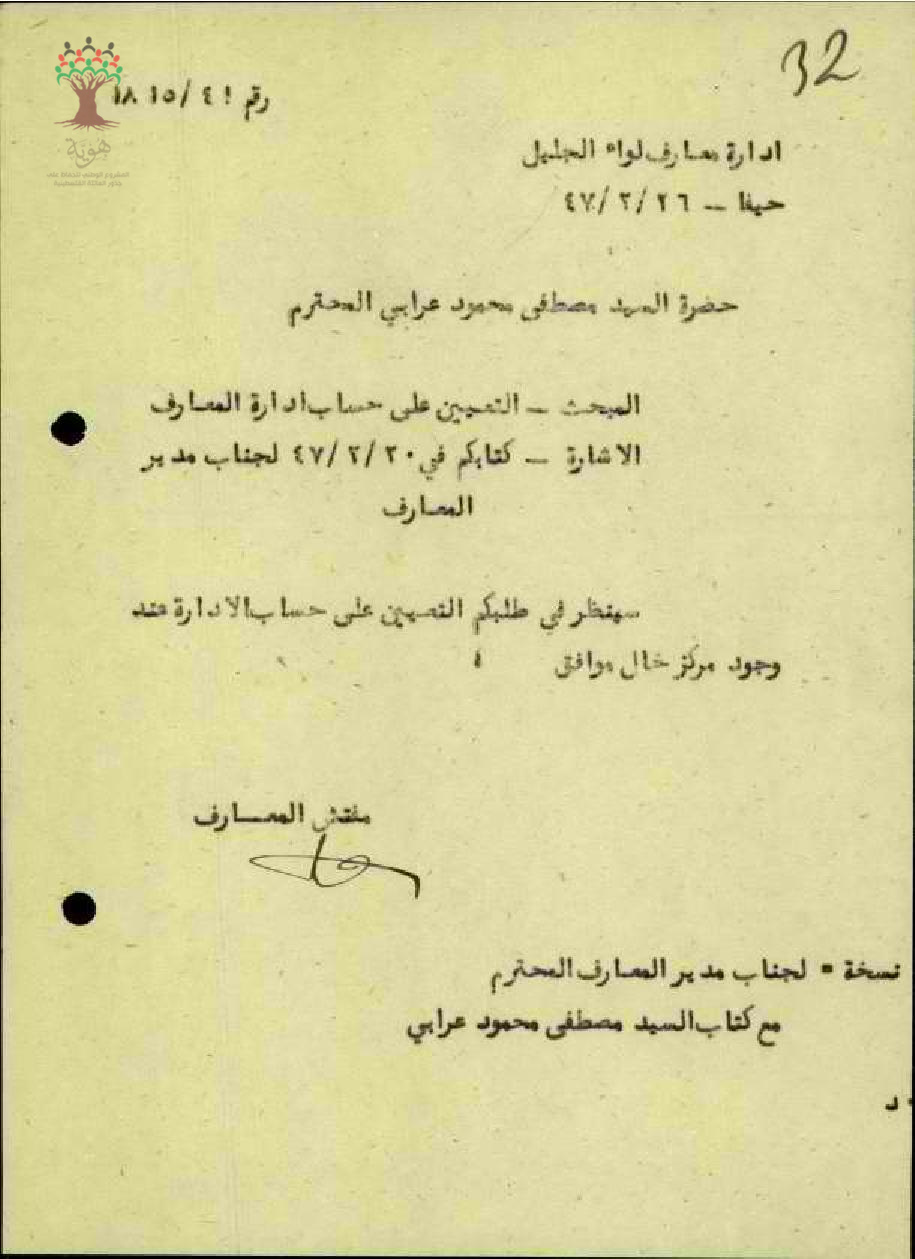 32
رقم ! ٤ /١٥ ١٨
ادارة معارف لواء الجليل
حيفا – ٢٦ /٢ /٤٧
حضرة السيد مصطفى محمود عرابي المحترم
المبحث – التعيين على حساب ادارة المعارف
الاشارة – كتابكم في ٢٠ /٢ /٤٧ لجناب مدير
المعارف
سينظر في طلبكم التعيين على حساب الادارة عند
وجود مركز خال موافق
مفتش المعــارف
نسخة = لجناب مدير المعارف المحترم
مع كتاب السيد مصطفى محمود عرابي
د
هوية